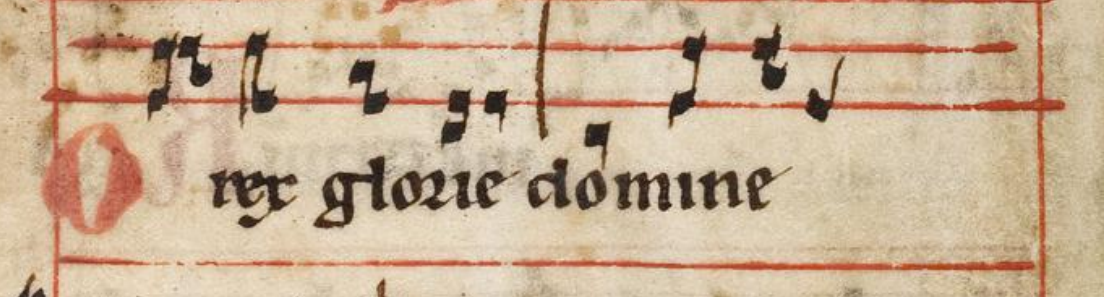 O rex glorie domine